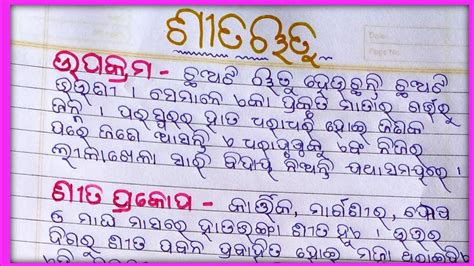 ଶୀତଋତୁ
ଉପକ୍ରମ - ଛଅଟି ଋତୁ ହେଉଛନ୍ତି ଛଅଟି
ଭଉଣୀ । ସେମାନେ ଏକା ପ୍ରକୃତି ମାତାର ଗର୍ଭରୁ
ଜନ୍ମ । ପରସ୍ପରର ହାତ ଧରାଧରି ହୋଇ ଜଣେକ
ପରେ ଜଣେ ଆସନ୍ତି ଏ ଧରାପୃଷ୍ଠକୁ ଏବଂ ନିଜର
ଲୀଳାଖେଳା ସାରି ବିଦାୟ ନିଅନ୍ତି ଯଥାସମୟରେ ।
ଶୀତ ପ୍ରକୋପ - କାର୍ତ୍ତିକ, ମାର୍ଗଶୀର, ପୌଷ
ଓ ମାଘ ମାସରେ ହାଡଭଙ୍ଗା ଶୀତ ହୁଏ । ଉତ୍ତର
ଦିଗରୁ ଶୀତ ପବନ ପ୍ରବାହିତ ହୋଇ